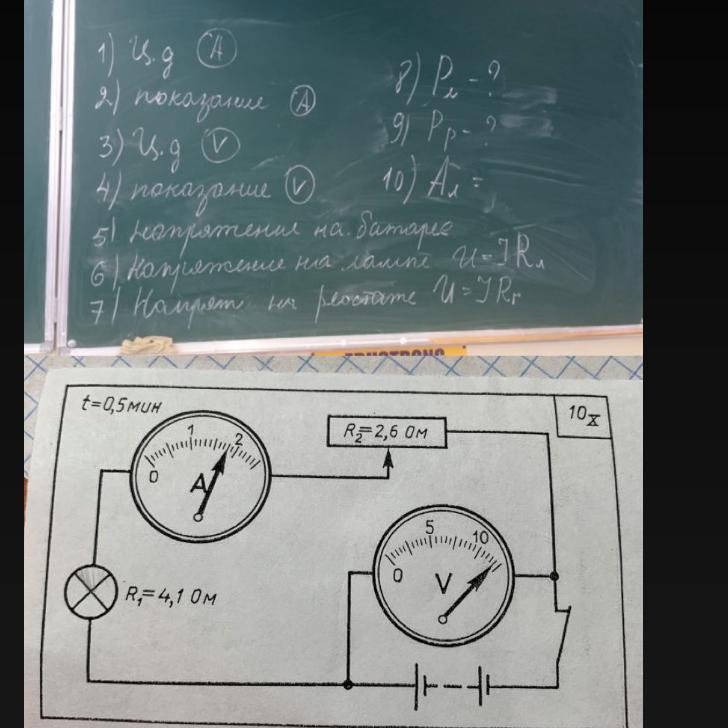 1) Ц.д (A)
2) показание (A)
3) Ц.д (V)
4) показание (V)
5) напряжение на батарее
6) Напряжение на лампе U=IRл
7) Напряж на реостате U=IRр
8) Pл - ?
9) Pр - ?
10) Aл =
t=0,5мин
10х
0 1 2
A
R₂=2,6 Ом
0 5 10
V
R₁=4,1 Ом